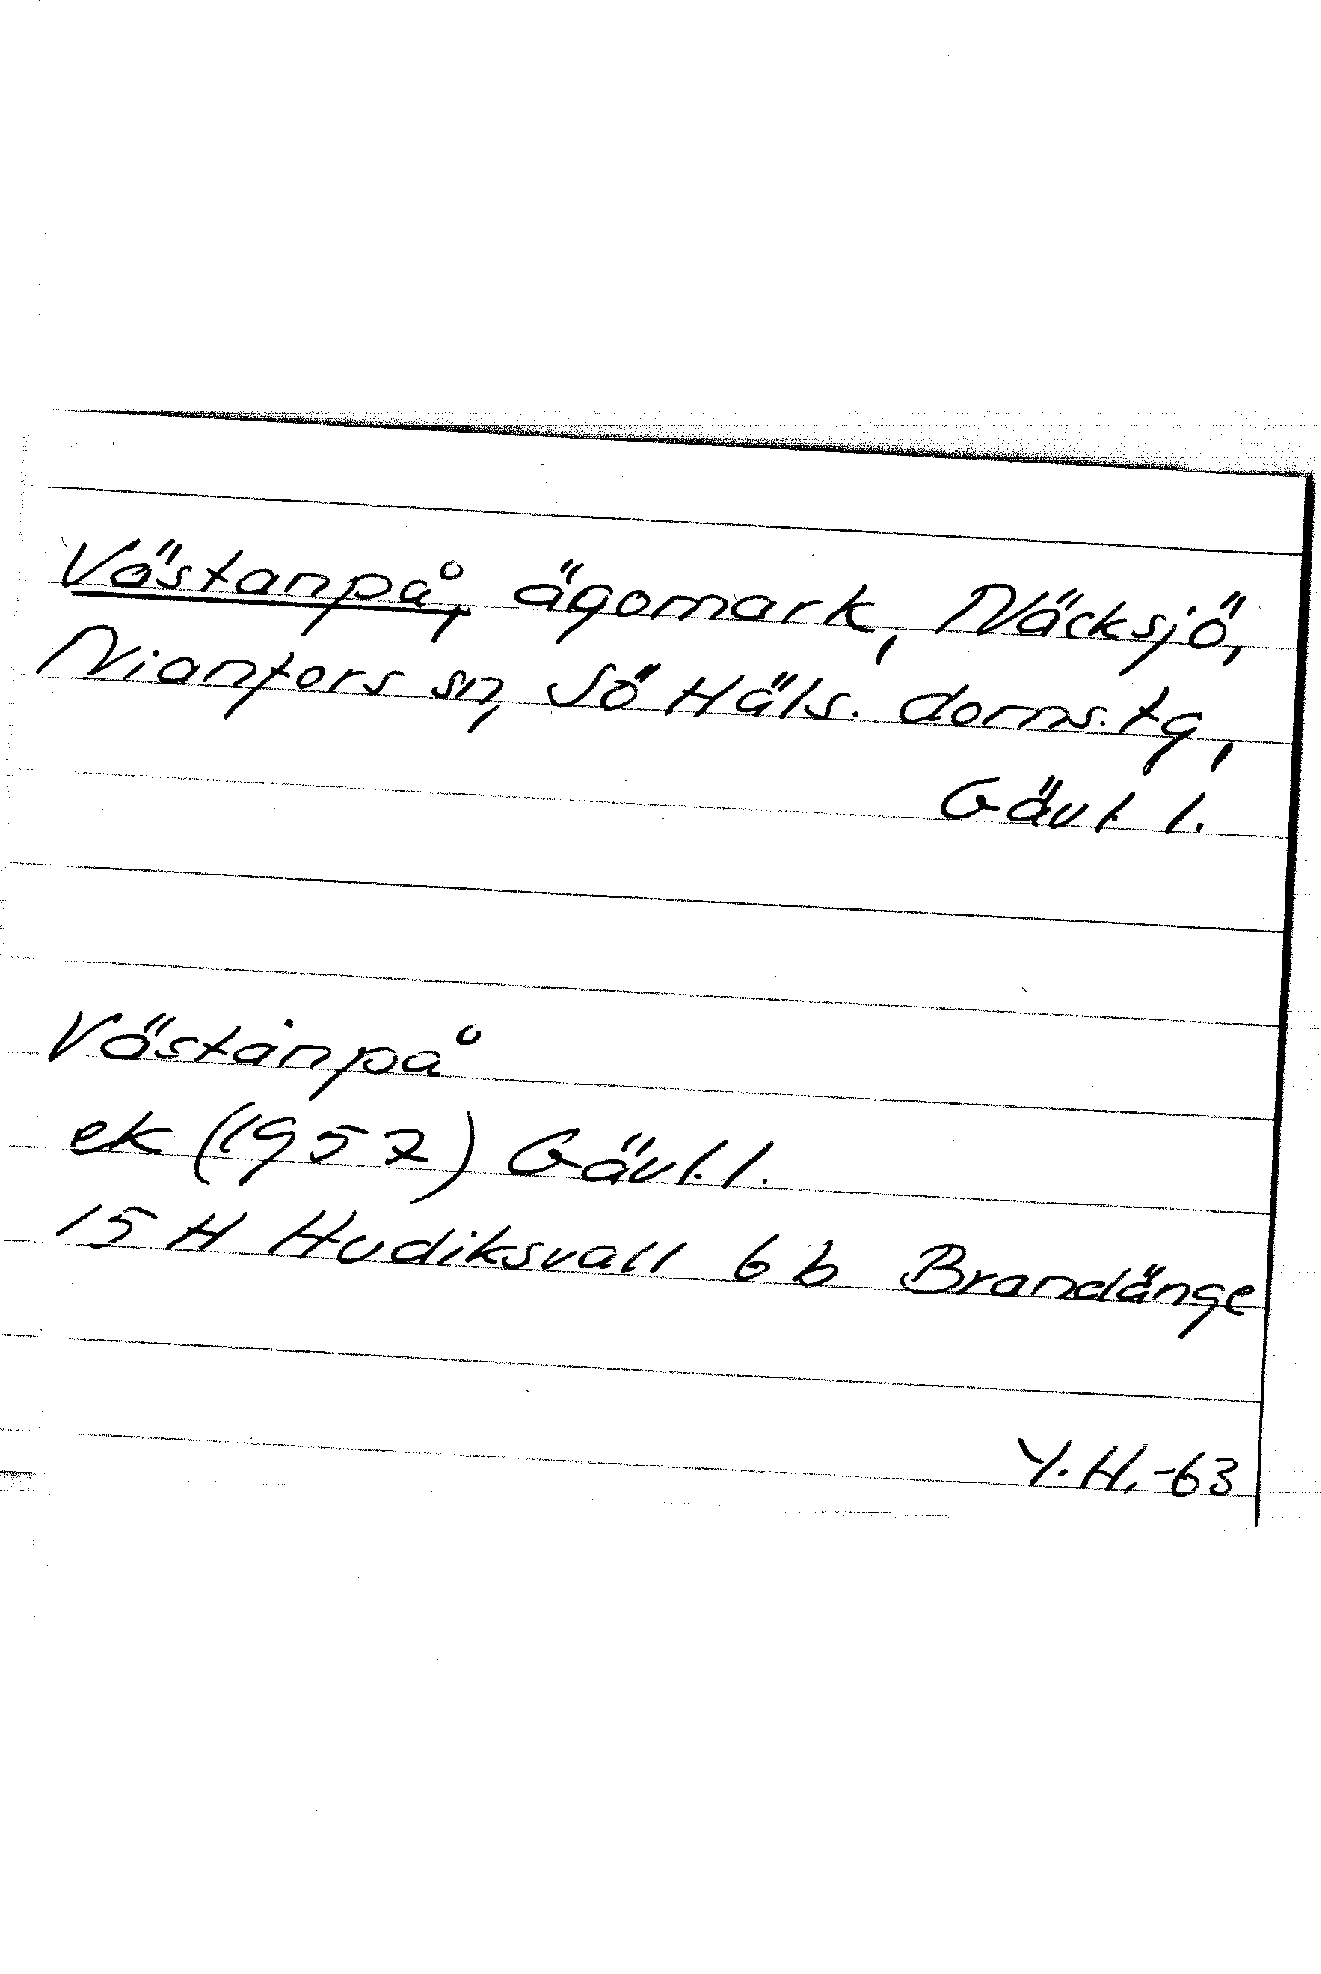 Västanpå, ägomark, Näcksjö,
Nianfors sn, Sö Häls. doms.tg,
Gävl. l.
Västanpå
ek (1957) Gävl. l.
15 H Hudiksvall 6 b Brandänge
Y.H. -63